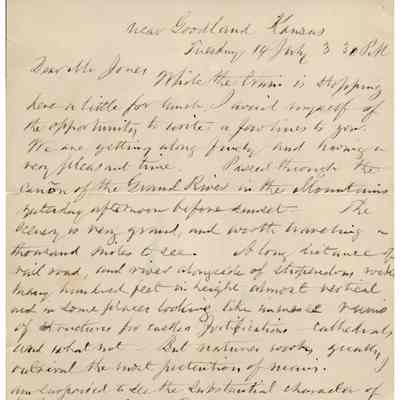 near Goodland Kansas
Tuesday 14 July 3 30 P.M
Dear Mr Jones
While the train is stopping
here a little for lunch I avail myself of
the opportunity to write a few lines to you.
We are getting along finely and having a
very pleasant time. Passed through the
cañon of the Grand River in the Mountains
yesterday afternoon before sunset. The
scenery is very grand, and worth traveling a
thousand miles to see. A long distance of
rail road, and river alongside of stupendous rocks
many hundred feet in height almost vertical
and in some places looking like immense ruins
of structures for castles fortifications cathedrals
and what not. But natures works greatly
outrival the most pretention of
am surprised to see the substantial character of